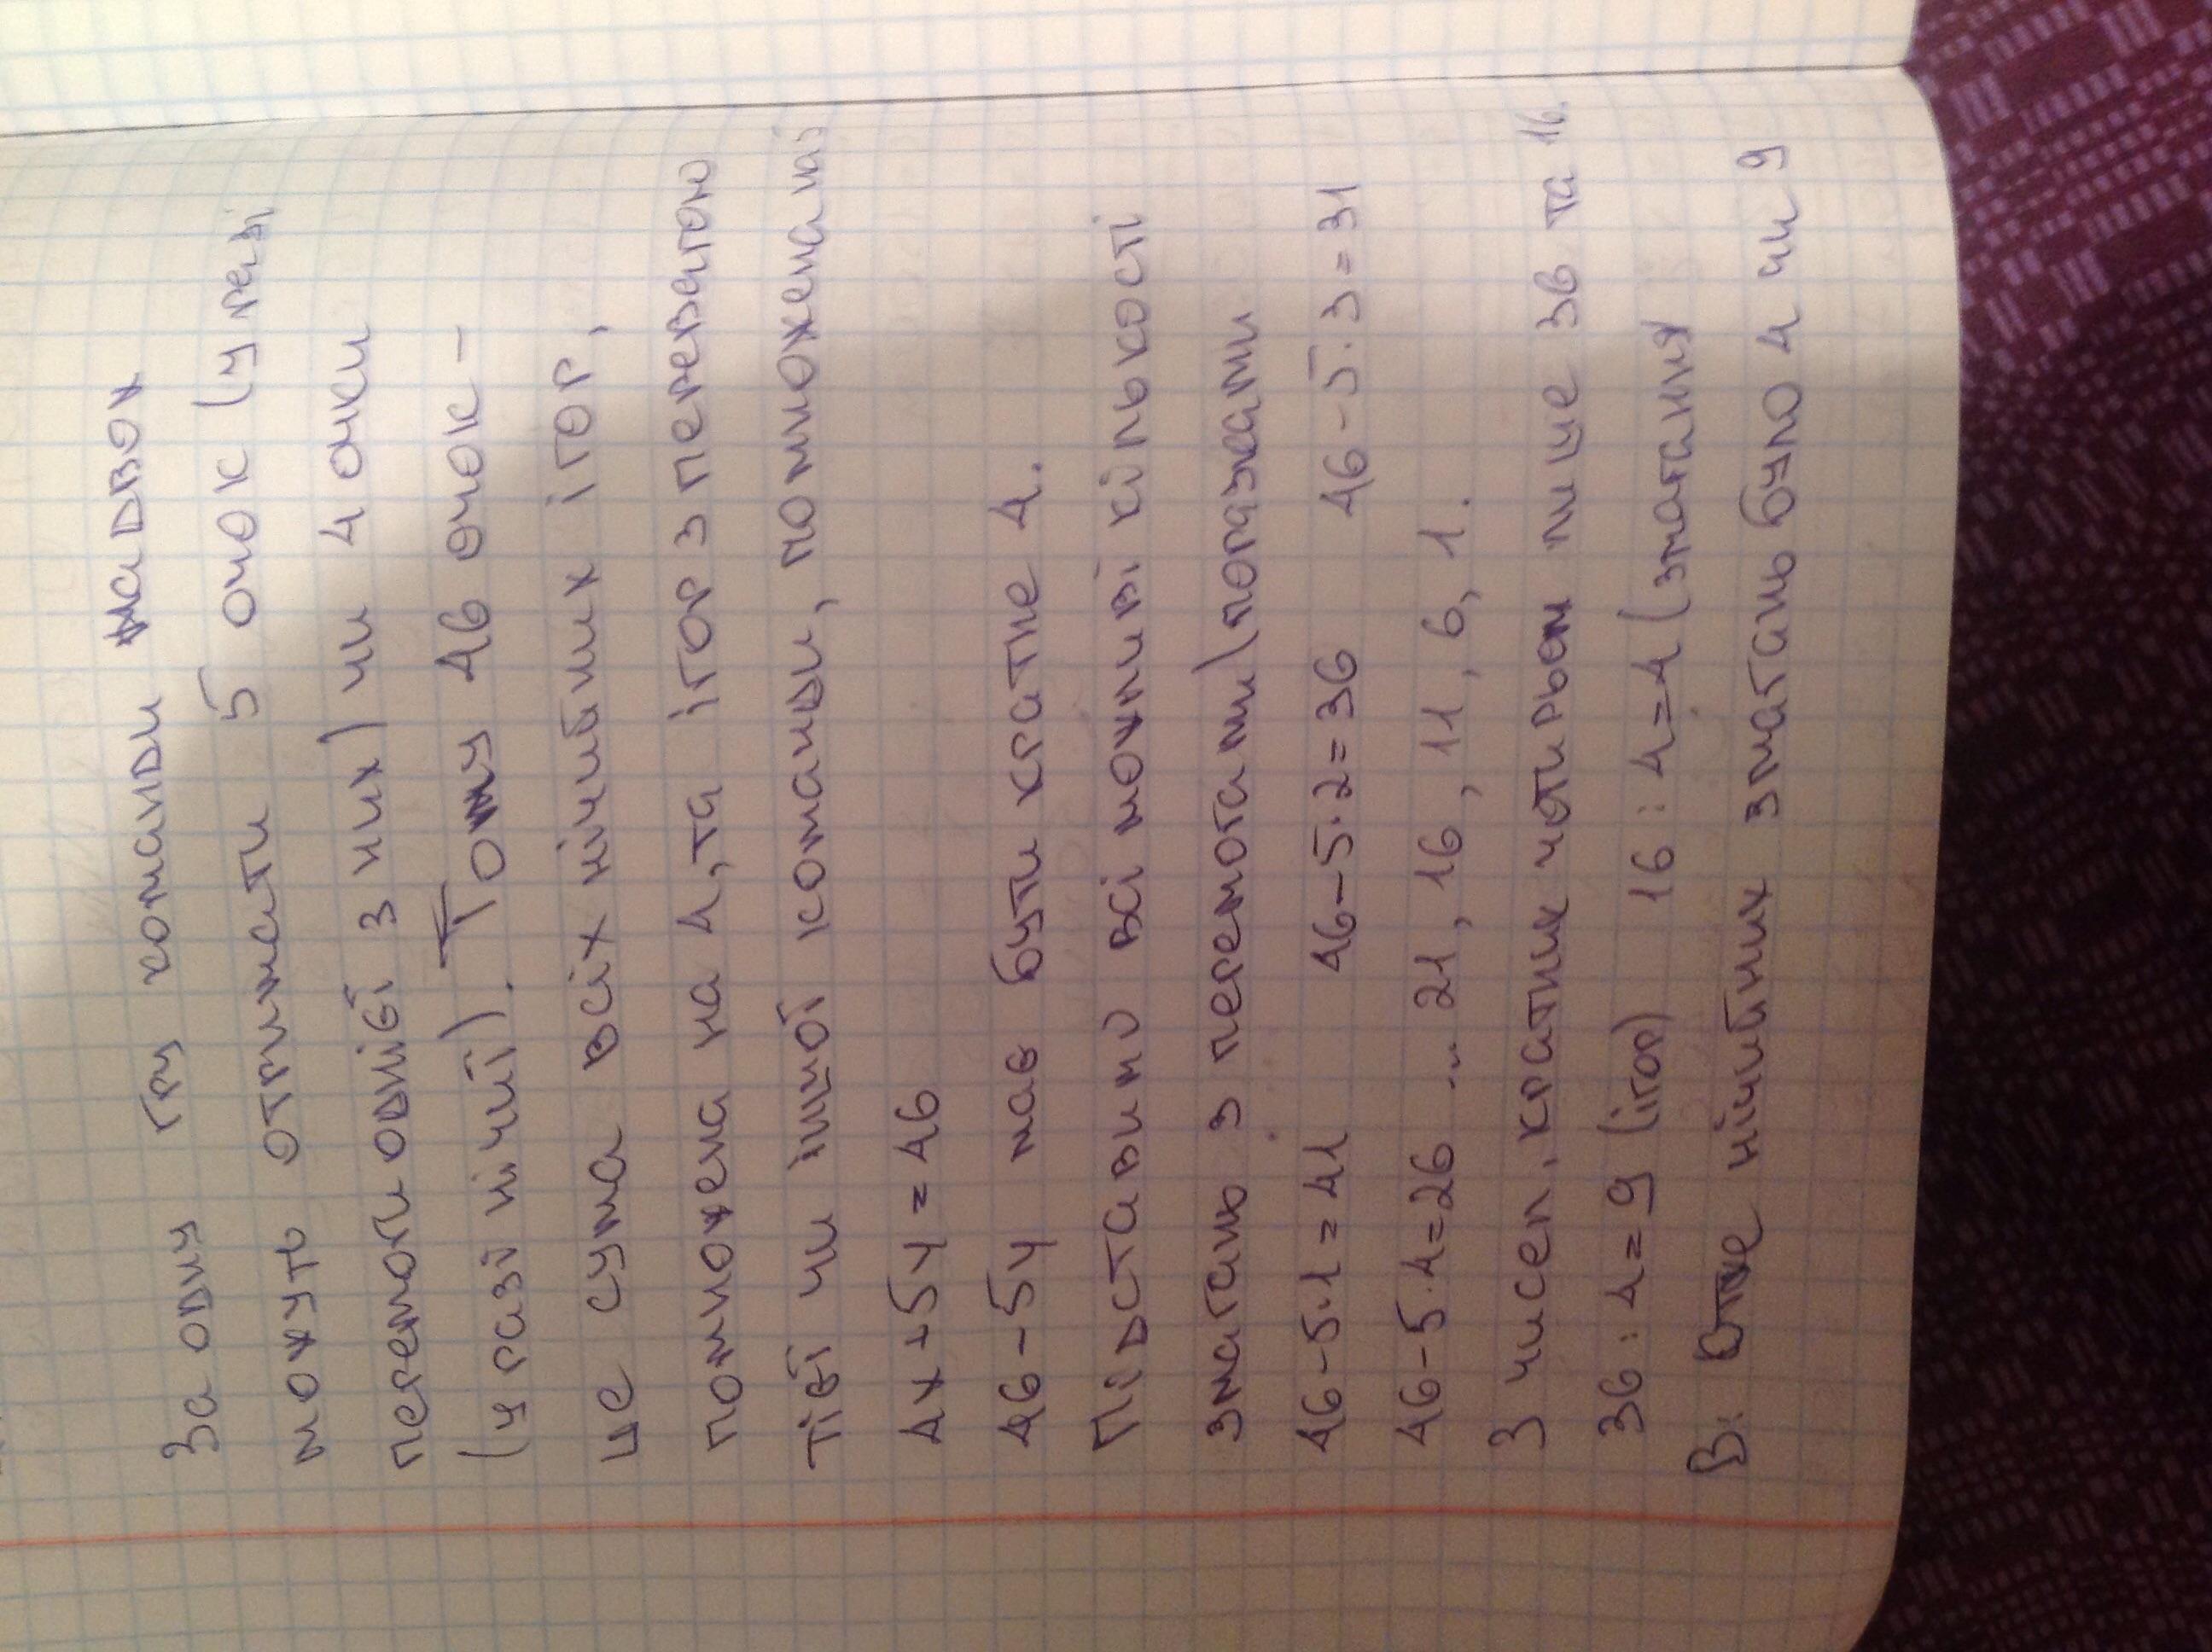 За одну гру команди надвох
можуть отримати 5 очок (у разі
перемоги однієї з них) чи 4 очки
(у разі нічиї). Тому 46 очок -
це сума всіх нічийних ігор,
помножена на 4, та ігор з перевагою
тієї чи іншої команди, помноженаї
4x+5y=46
46-5y має бути кратне 4.
Підставимо всі можливі кількості
змагань з перемогами/поразками
46-5·1=41 46-5·2=36 46-5·3=31
46-5·4=26 ... 21, 16, 11, 6, 1.
З чисел, кратних чотирьом лише 36 та 16.
36:4=9 (ігор) 16:4=4 (змагання)
В: Отже нічийних змагань було 4 чи 9